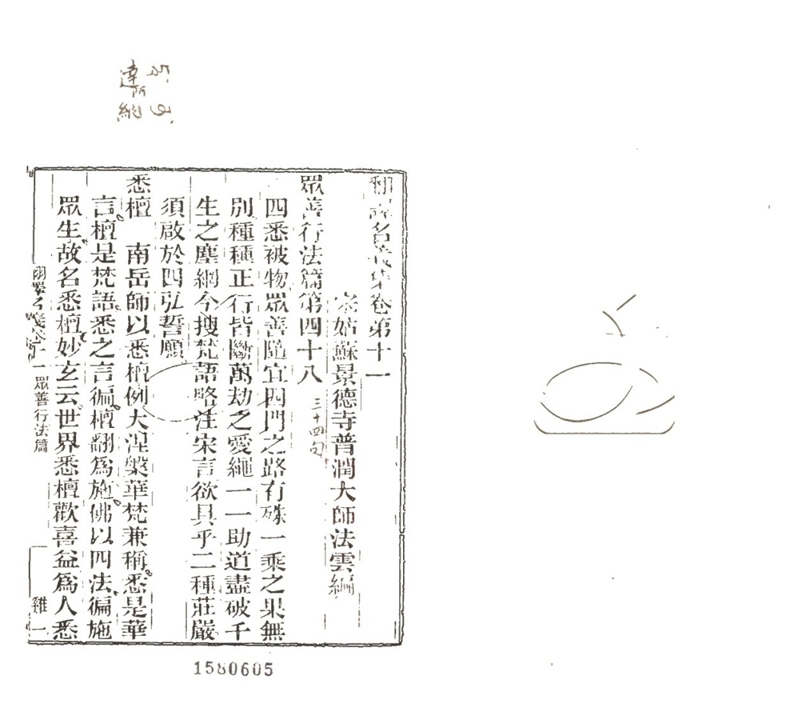 翻譯名義集卷第十一
宋姑蘇景德寺普潤大師法雲編
眾善行法篇第四十八
三十四句
四悉被物眾善隨宜四門之路有殊一乘之果無
別種種正行皆斷萬劫之愛繩一一助道盡破千
生之塵網今搜梵語略注宋言欲具乎二種莊嚴
須啟於四弘誓願
悉檀　南岳師以悉檀例大涅槃華梵兼稱悉是華
言檀是梵語悉之言徧檀翻為施佛以四法徧施
眾生故名悉檀妙玄云世界悉檀歡喜益為人悉
翻譯名義卷十一 眾善行法篇 一
1580605